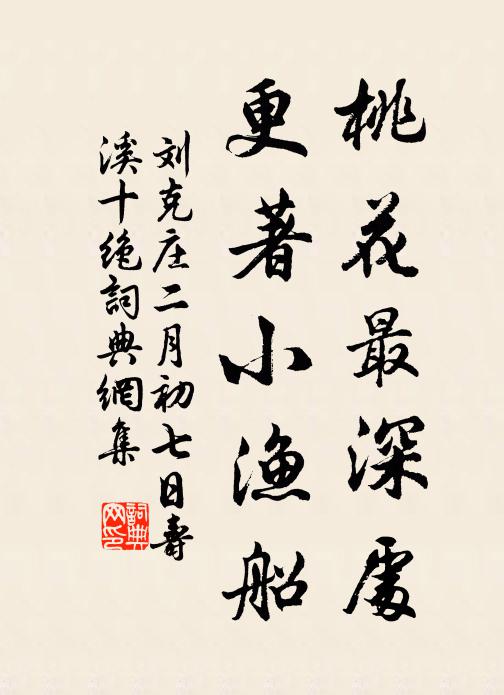 桃花最深處
更著小漁船
刘克庄二月初七日壽
溪十绝詞典網集
詞典
网印